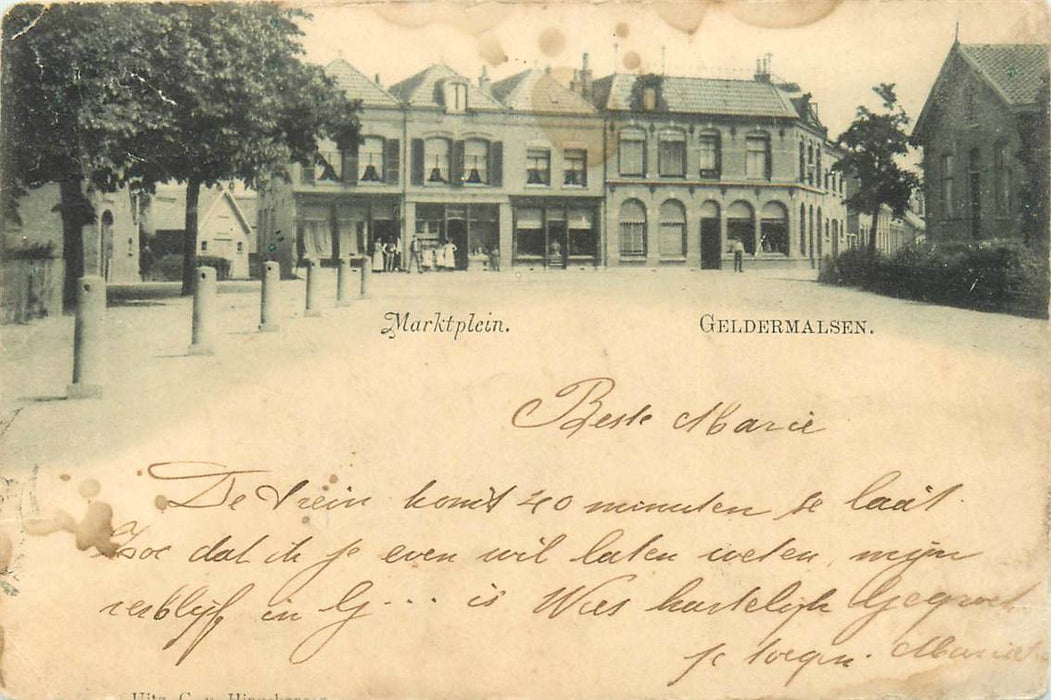 Marktplein.
GELDERMALSEN.
Beste Marie
De trein komt 40 minuten te laat.
Zoo dat ik je even wil laten weten, mijn
verblijf in G... is Wees hartelijk Gegroet
je
Uitg. C. v.